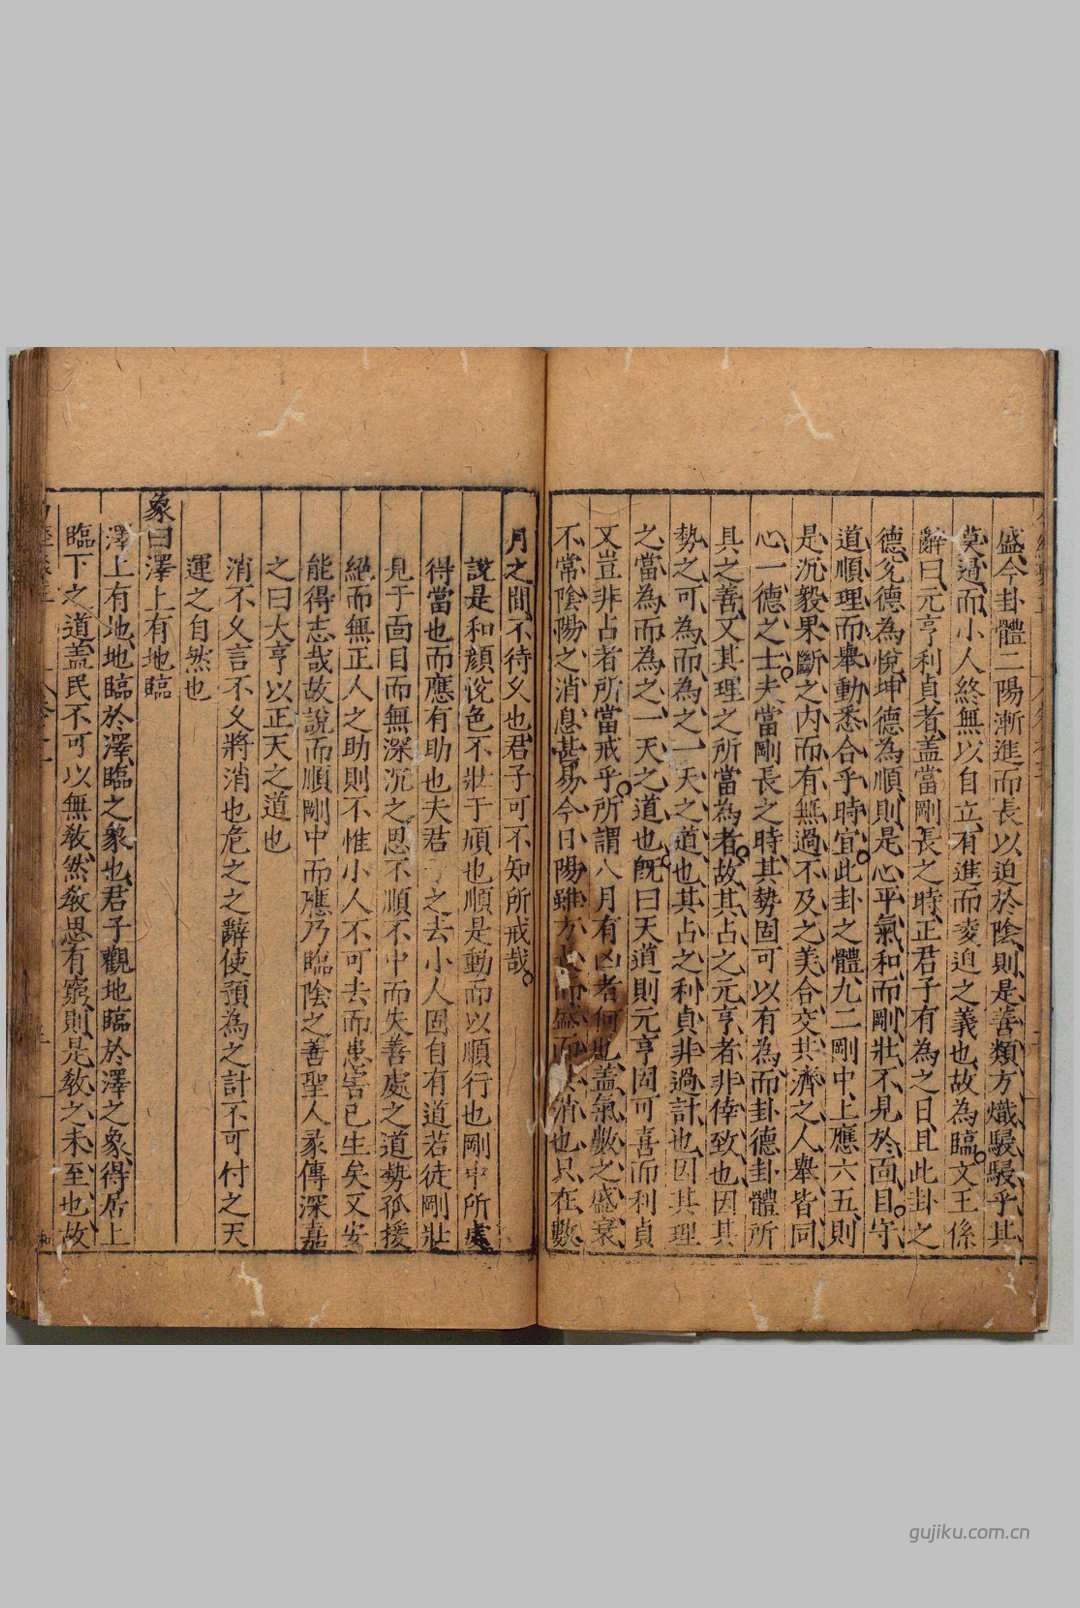 盛今卦體二陽漸進而長以迫於陰則是善類方熾駸駸乎其
莫遏而小人終無以自立有進而夌迫之義也故為臨文王係
辭曰元亨利貞者盖當剛長之時正君子有為之日且此卦之
德兊德為悅坤德為順則是心平氣和而剛壯不見於面目守
道順理而舉動悉合乎時宜此卦之體九二剛中上應六五則
是沉毅果斷之内而有無過不及之美合交共濟之人舉皆同
心一德之士夫當剛長之時其勢固可以有為而卦德卦體所
具之善又其理之所當為者故其占之元亨者非倖致也因其
勢之可為而為之一天之道也其占之利貞非過計也因其理
之當為而為之一天之道也旣曰天道則元亨固可喜而利貞
又豈非占者所當戒乎所謂八月有凶者何也盖氣數之盛衰
不常陰陽之消息甚易今日陽雖方長而其消也只在數
月之間不待乆也君子可不知所戒哉
說是和顔悅色不壯于頄也順是動而以順行也剛中所處
得當也而應有助也夫君子之去小人固自有道若徒剛壯
見于面目而無深沉之思不順不中而失善處之道勢孤援
絕而無正人之助則不惟小人不可去而患害已生矣又安
能得志哉故說而順剛中而應乃臨陰之善聖人彖傳深嘉
之曰大亨以正天之道也
消不乆言不乆將消也危之之辭使預為之計不可付之天
運之自然也
象曰澤上有地臨
澤上有地地臨於澤臨之象也君子觀地臨於澤之象得居上
臨下之道盖民不可以無敎然敎思有窮則是敎之未至也故
gujiku.com.cn